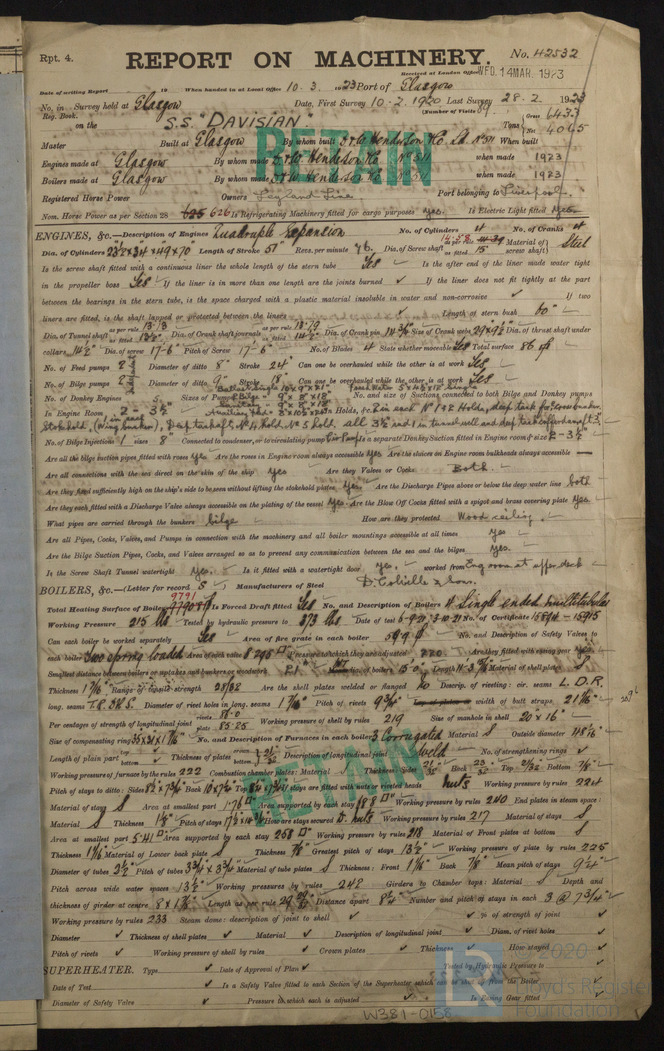 Rpt. 4.
REPORT ON MACHINERY.
No. 42532
Received at London Office WED. 14 MAR. 1923
Date of writing Report 19 When handed in at Local Office 10. 3. 1923 Port of Glasgow
No. in Survey held at Glasgow Date, First Survey 10. 2. 1920 Last Survey 28. 2. 1923
Reg. Book. (Number of Visits 89)
on the S.S. "DAVISIAN" Tons Gross 6433 Net 4065
Master Built at Glasgow By whom built D. & W. Henderson & Co. Ld. No 511 When built
Engines made at Glasgow By whom made D. & W. Henderson & Co. No 511 when made 1923
Boilers made at Glasgow By whom made D. & W. Henderson & Co. No 511 when made 1923
Registered Horse Power Owners Leyland Line Port belonging to Liverpool
Nom. Horse Power as per Section 28 625 626 Is Refrigerating Machinery fitted for cargo purposes Yes. Is Electric Light fitted Yes.
RETAIN
ENGINES, &c.—Description of Engines Quadruple Expansion No. of Cylinders 4 No. of Cranks 4
Dia. of Cylinders Length of Stroke 51" Revs. per minute 76. Dia. of Screw shaft as per rule 14.58 as fitted 15" Material of screw shaft Steel
Is the screw shaft fitted with a continuous liner the whole length of the stern tube Yes Is the after end of the liner made water tight
in the propeller boss Yes If the liner is in more than one length are the joints burned If the liner does not fit tightly at the part
between the bearings in the stern tube, is the space charged with a plastic material insoluble in water and non-corrosive If two
liners are fitted, is the shaft lapped or protected between the liners Length of stern bush 60"
Dia. of Tunnel shaft as per rule 13.13 as fitted 13½" Dia. of Crank shaft journals as per rule 13.79 as fitted 14½" Dia. of Crank pin 14¾" Size of Crank webs 29 x 9½" Dia. of thrust shaft under
collars 14½" Dia. of screw 17-6" Pitch of Screw 17-6" No. of Blades 4 State whether moveable Yes Total surface 86
No. of Feed pumps 2 Diameter of ditto 8" Stroke 24" Can one be overhauled while the other is at work Yes
No. of Bilge pumps 2 Diameter of ditto 9" Stroke 18" Can one be overhauled while the other is at work Yes
No. of Donkey Engines 5 Sizes of Pumps No. and size of Suctions connected to both Bilge and Donkey pumps
In Engine Room 2 - 3½" In Holds, &c.
No. of Bilge Injections 1 sizes 8" Connected to condenser, or to circulating pump Is a separate Donkey Suction fitted in Engine room & size 2-3½"
Are all the bilge suction pipes fitted with roses Yes Are the roses in Engine room always accessible Yes Are the sluices on Engine room bulkheads always accessible
Are all connections with the sea direct on the skin of the ship Yes Are they Valves or Cocks Both.
Are they fixed sufficiently high on the ship's side to be seen without lifting the stokehold plates Yes. Are the Discharge Pipes above or below the deep water line both
Are they each fitted with a Discharge Valve always accessible on the plating of the vessel Yes. Are the Blow Off Cocks fitted with a spigot and brass covering plate Yes.
What pipes are carried through the bunkers bilge How are they protected Wood ceiling.
Are all Pipes, Cocks, Valves, and Pumps in connection with the machinery and all boiler mountings accessible at all times Yes
Are the Bilge Suction Pipes, Cocks, and Valves arranged so as to prevent any communication between the sea and the bilges Yes.
Is the Screw Shaft Tunnel watertight Yes. Is it fitted with a watertight door Yes. worked from Eng room at upper deck
BOILERS, &c.—(Letter for record S) Manufacturers of Steel D. Colville & Sons.
Total Heating Surface of Boilers 9791 Is Forced Draft fitted Yes No. and Description of Boilers 4 Single ended multitubular
Working Pressure 215 lbs Tested by hydraulic pressure to 373 lbs Date of test No. of Certificate 15894 - 15915
Can each boiler be worked separately Yes Area of fire grate in each boiler 59.9 No. and Description of Safety Valves to
each boiler Two spring loaded Area of each valve 8.295 Pressure to which they are adjusted 220 Are they fitted with easing gear Yes.
Smallest distance between boilers or uptakes and bunkers or woodwork Dia. of boilers 15'-0" Length Material of shell plates S
Thickness Range of tensile strength 28/32 Are the shell plates welded or flanged No Descrip. of riveting: cir. seams L.D.R.
long. seams T.R.D.B.S. Diameter of rivet holes in long. seams Pitch of rivets width of butt straps
Per centages of strength of longitudinal joint rivets plate 85.25 Working pressure of shell by rules 219 Size of manhole in shell 20 x 16"
Size of compensating ring No. and Description of Furnaces in each boiler 3 Corrugated Material S Outside diameter
Length of plain part top bottom Thickness of plates crown bottom Description of longitudinal joint Weld No. of strengthening rings
Working pressure of furnace by the rules 222 Combustion chamber plates: Material S Thickness: Sides Back Top Bottom 7/8"
Pitch of stays to ditto: Sides Back Top If stays are fitted with nuts or riveted heads nuts Working pressure by rules 224
Material of stays S Area at smallest part Area supported by each stay Working pressure by rules 240 End plates in steam space:
Material S Thickness Pitch of stays How are stays secured D. nuts Working pressure by rules 217 Material of stays S
Area at smallest part 5.41 Area supported by each stay 258 Working pressure by rules 218 Material of Front plates at bottom S
Thickness Material of Lower back plate S Thickness 7/8" Greatest pitch of stays 13½" Working pressure of plate by rules 225
Diameter of tubes 2½" Pitch of tubes 3¾ x 3¾" Material of tube plates S Thickness: Front Back 7/8" Mean pitch of stays 9¼"
Pitch across wide water spaces 13½" Working pressures by rules 242 Girders to Chamber tops: Material S Depth and
thickness of girder at centre Length as per rule Distance apart Number and pitch of stays in each 3 @ 7¾"
Working pressure by rules 233 Steam dome: description of joint to shell % of strength of joint
Diameter Thickness of shell plates Material Description of longitudinal joint Diam. of rivet holes
Pitch of rivets Working pressure of shell by rules Crown plates Thickness How stayed
SUPERHEATER. Type Date of Approval of Plan Tested by Hydraulic Pressure to
Date of Test Is a Safety Valve fitted to each Section of the Superheater which can be shut off from the Boiler
Diameter of Safety Valve Pressure to which each is adjusted Is Easing Gear fitted
RETAIN
© 2020
Lloyd's Register
Foundation
W381-0158